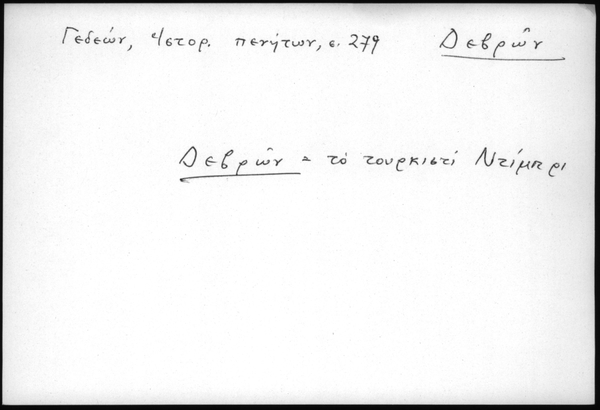 Γεδεών, Ἱστορ. πενήτων, σ. 279 Δεβρῶν
Δεβρῶν = τὸ τουρκιστί Ντίμπρι